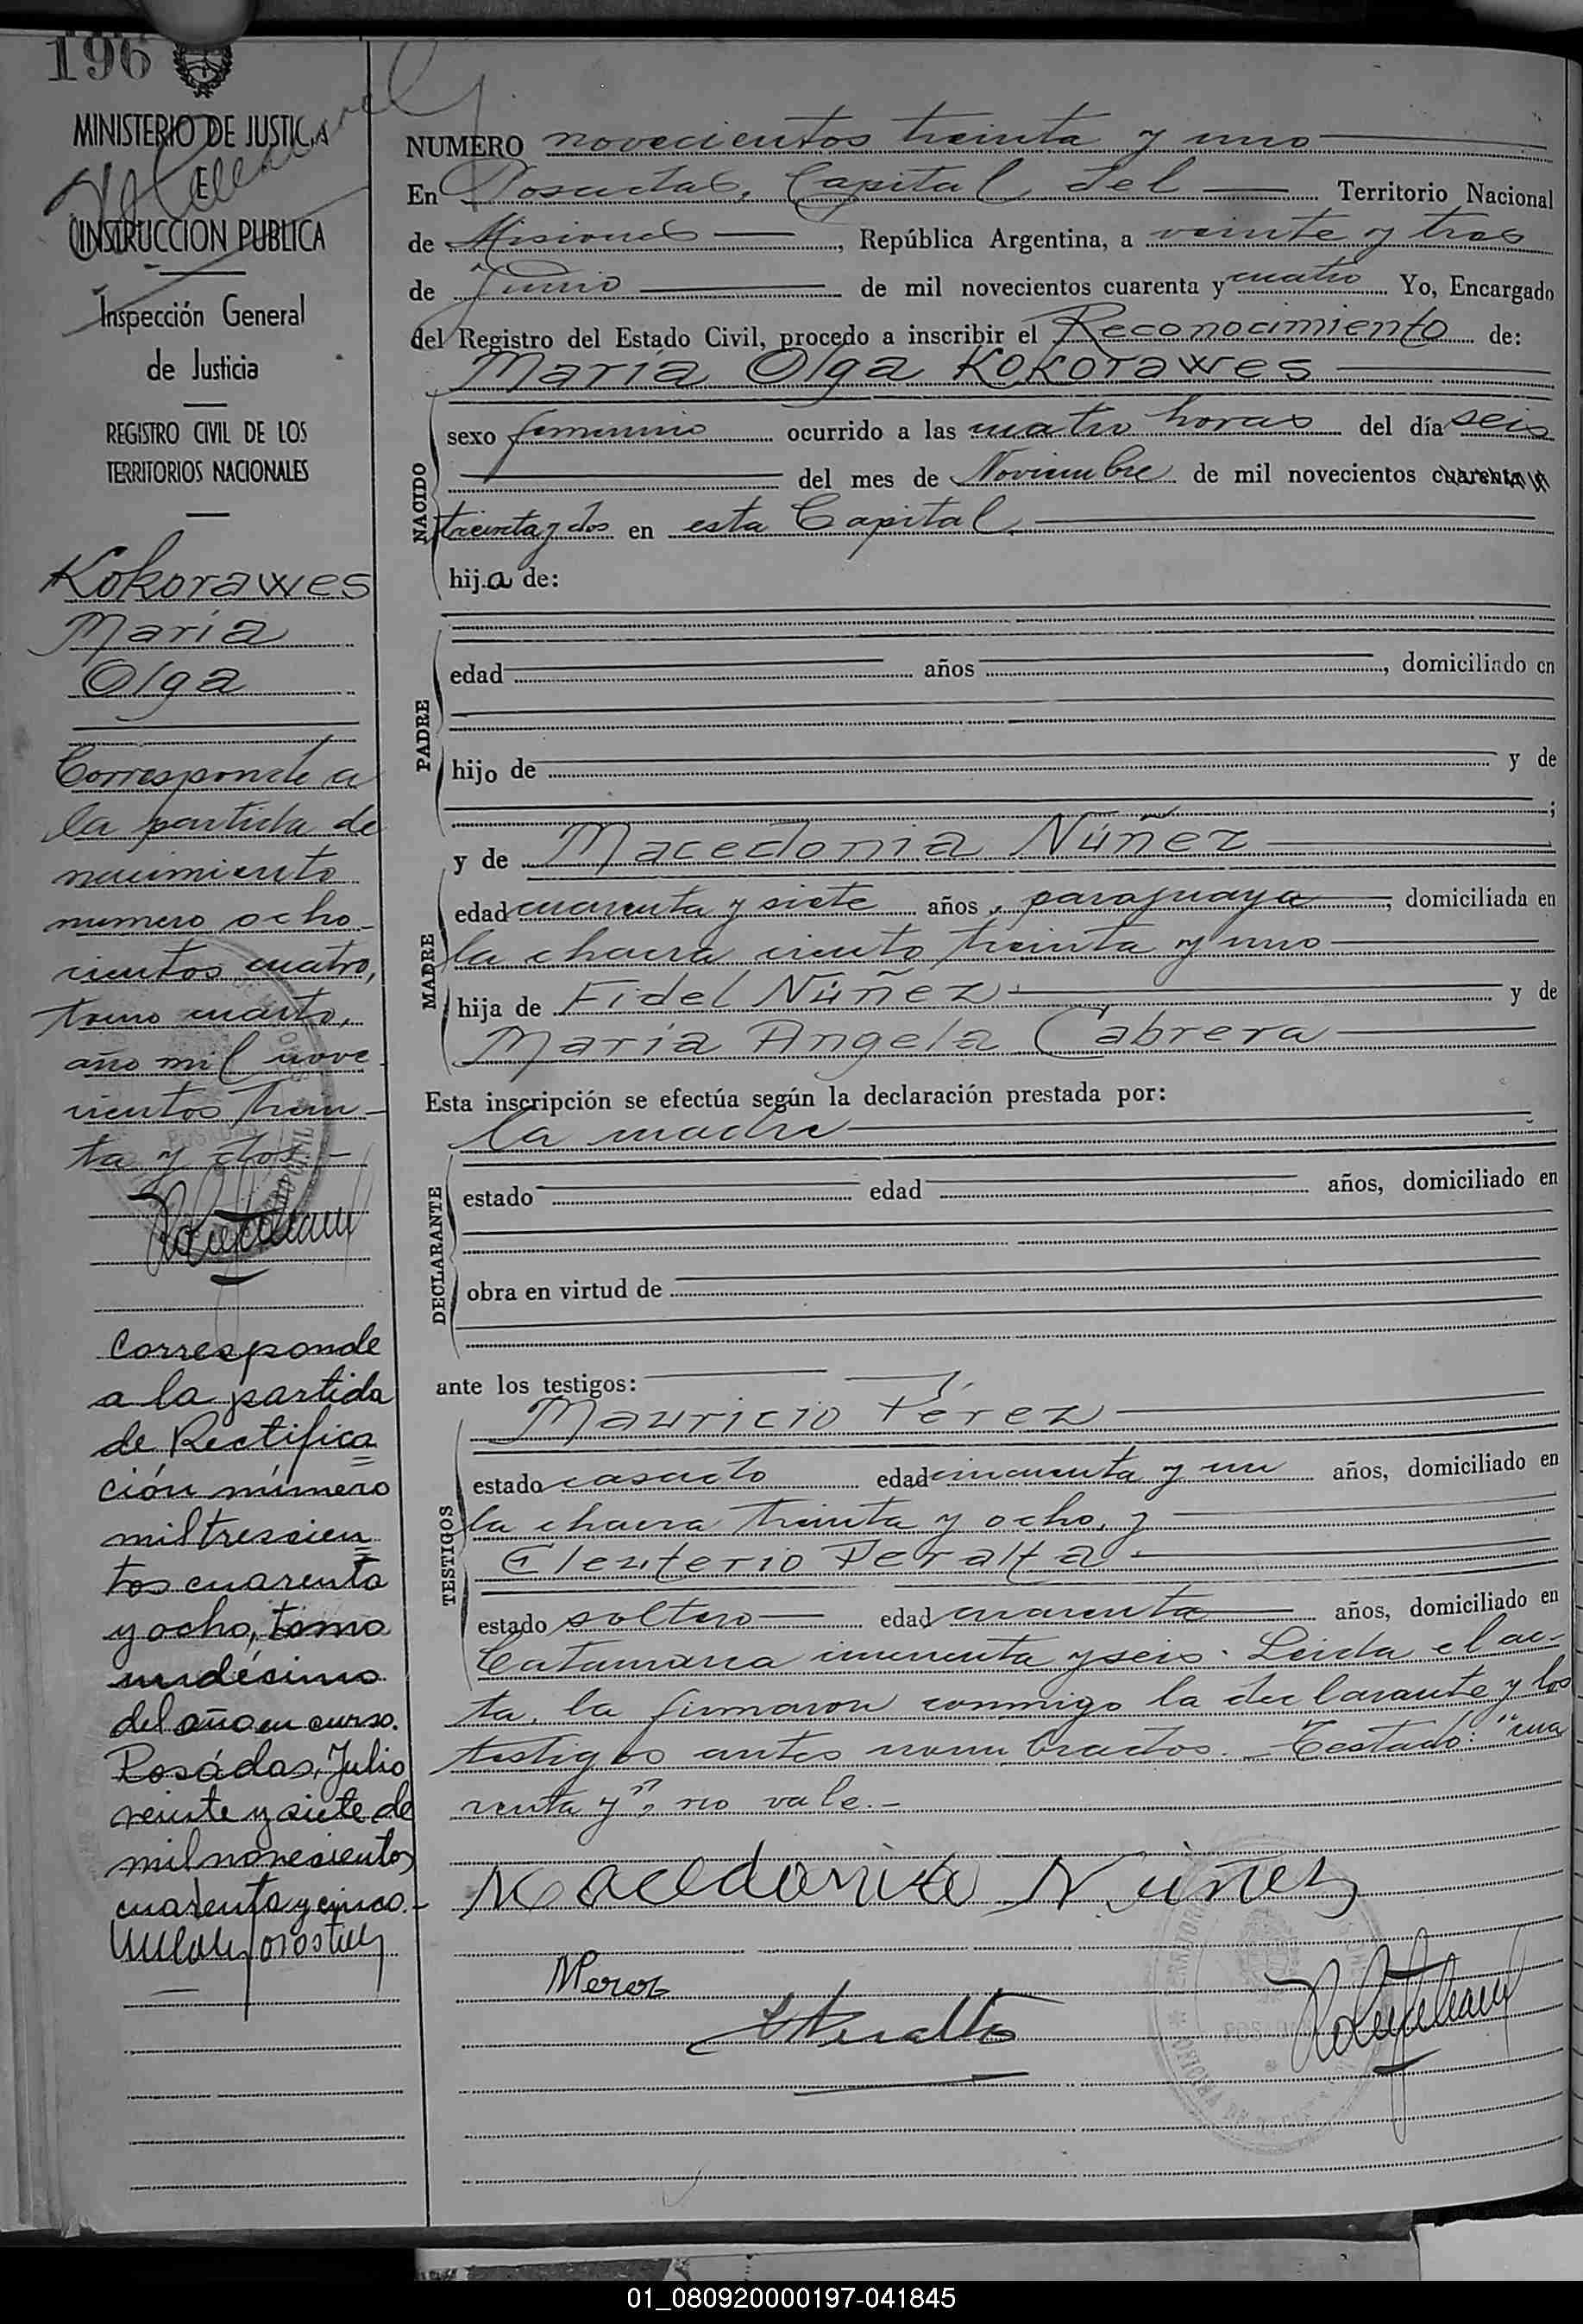 196
MINISTERIO DE JUSTICIA
E
INSTRUCCION PUBLICA
Inspección General
de Justicia
REGISTRO CIVIL DE LOS
TERRITORIOS NACIONALES
Kokorawes
María
Olga
Corresponde a
la partida de
nacimiento
numero ocho-
cientos cuatro,
tomo cuarto,
año mil nove-
cientos trein-
ta y dos.-
Corresponde
a la partida
de Rectifica
ción número
mil trescien
tos cuarenta
y ocho, tomo
undécimo
del año en curso.
Posádas, Julio
veinte y siete de
mil novecientos
cuarenta y cinco.-
NUMERO novecientos treinta y uno
En Posadas, Capital del Territorio Nacional
de Misiones, República Argentina, a veinte y tres
de Junio de mil novecientos cuarenta y cuatro Yo, Encargado
del Registro del Estado Civil, procedo a inscribir el Reconocimiento de:
María Olga Kokorawes
NACIDO
sexo femenino ocurrido a las cuatro horas del día seis
del mes de Noviembre de mil novecientos cuarenta y
treinta y dos en esta Capital
hij.a de:
PADRE
edad años , domiciliado en
hijo de y de
;
MADRE
y de Macedonia Núñez
edad cuarenta y siete años, paraguaya, domiciliada en
la chacra ciento treinta y uno
hija de Fidel Núñez y de
María Angela Cabrera
Esta inscripción se efectúa según la declaración prestada por:
la madre
DECLARANTE
estado edad años, domiciliado en
obra en virtud de
ante los testigos:
TESTIGOS
Mauricio Pérez
estado casado edad cincuenta y un años, domiciliado en
la chacra treinta y ocho, y
Eleuterio Peralta
estado soltero edad cuarenta años, domiciliado en
Catamarca cincuenta y seis. Leida el ac-
ta, la firmaron conmigo la declarante y los
testigos antes nombrados. - Testado: "cua
renta y", no vale.-
Macedonia Nuñez
MPerez
EPeralta
POSADAS
01_080920000197-041845